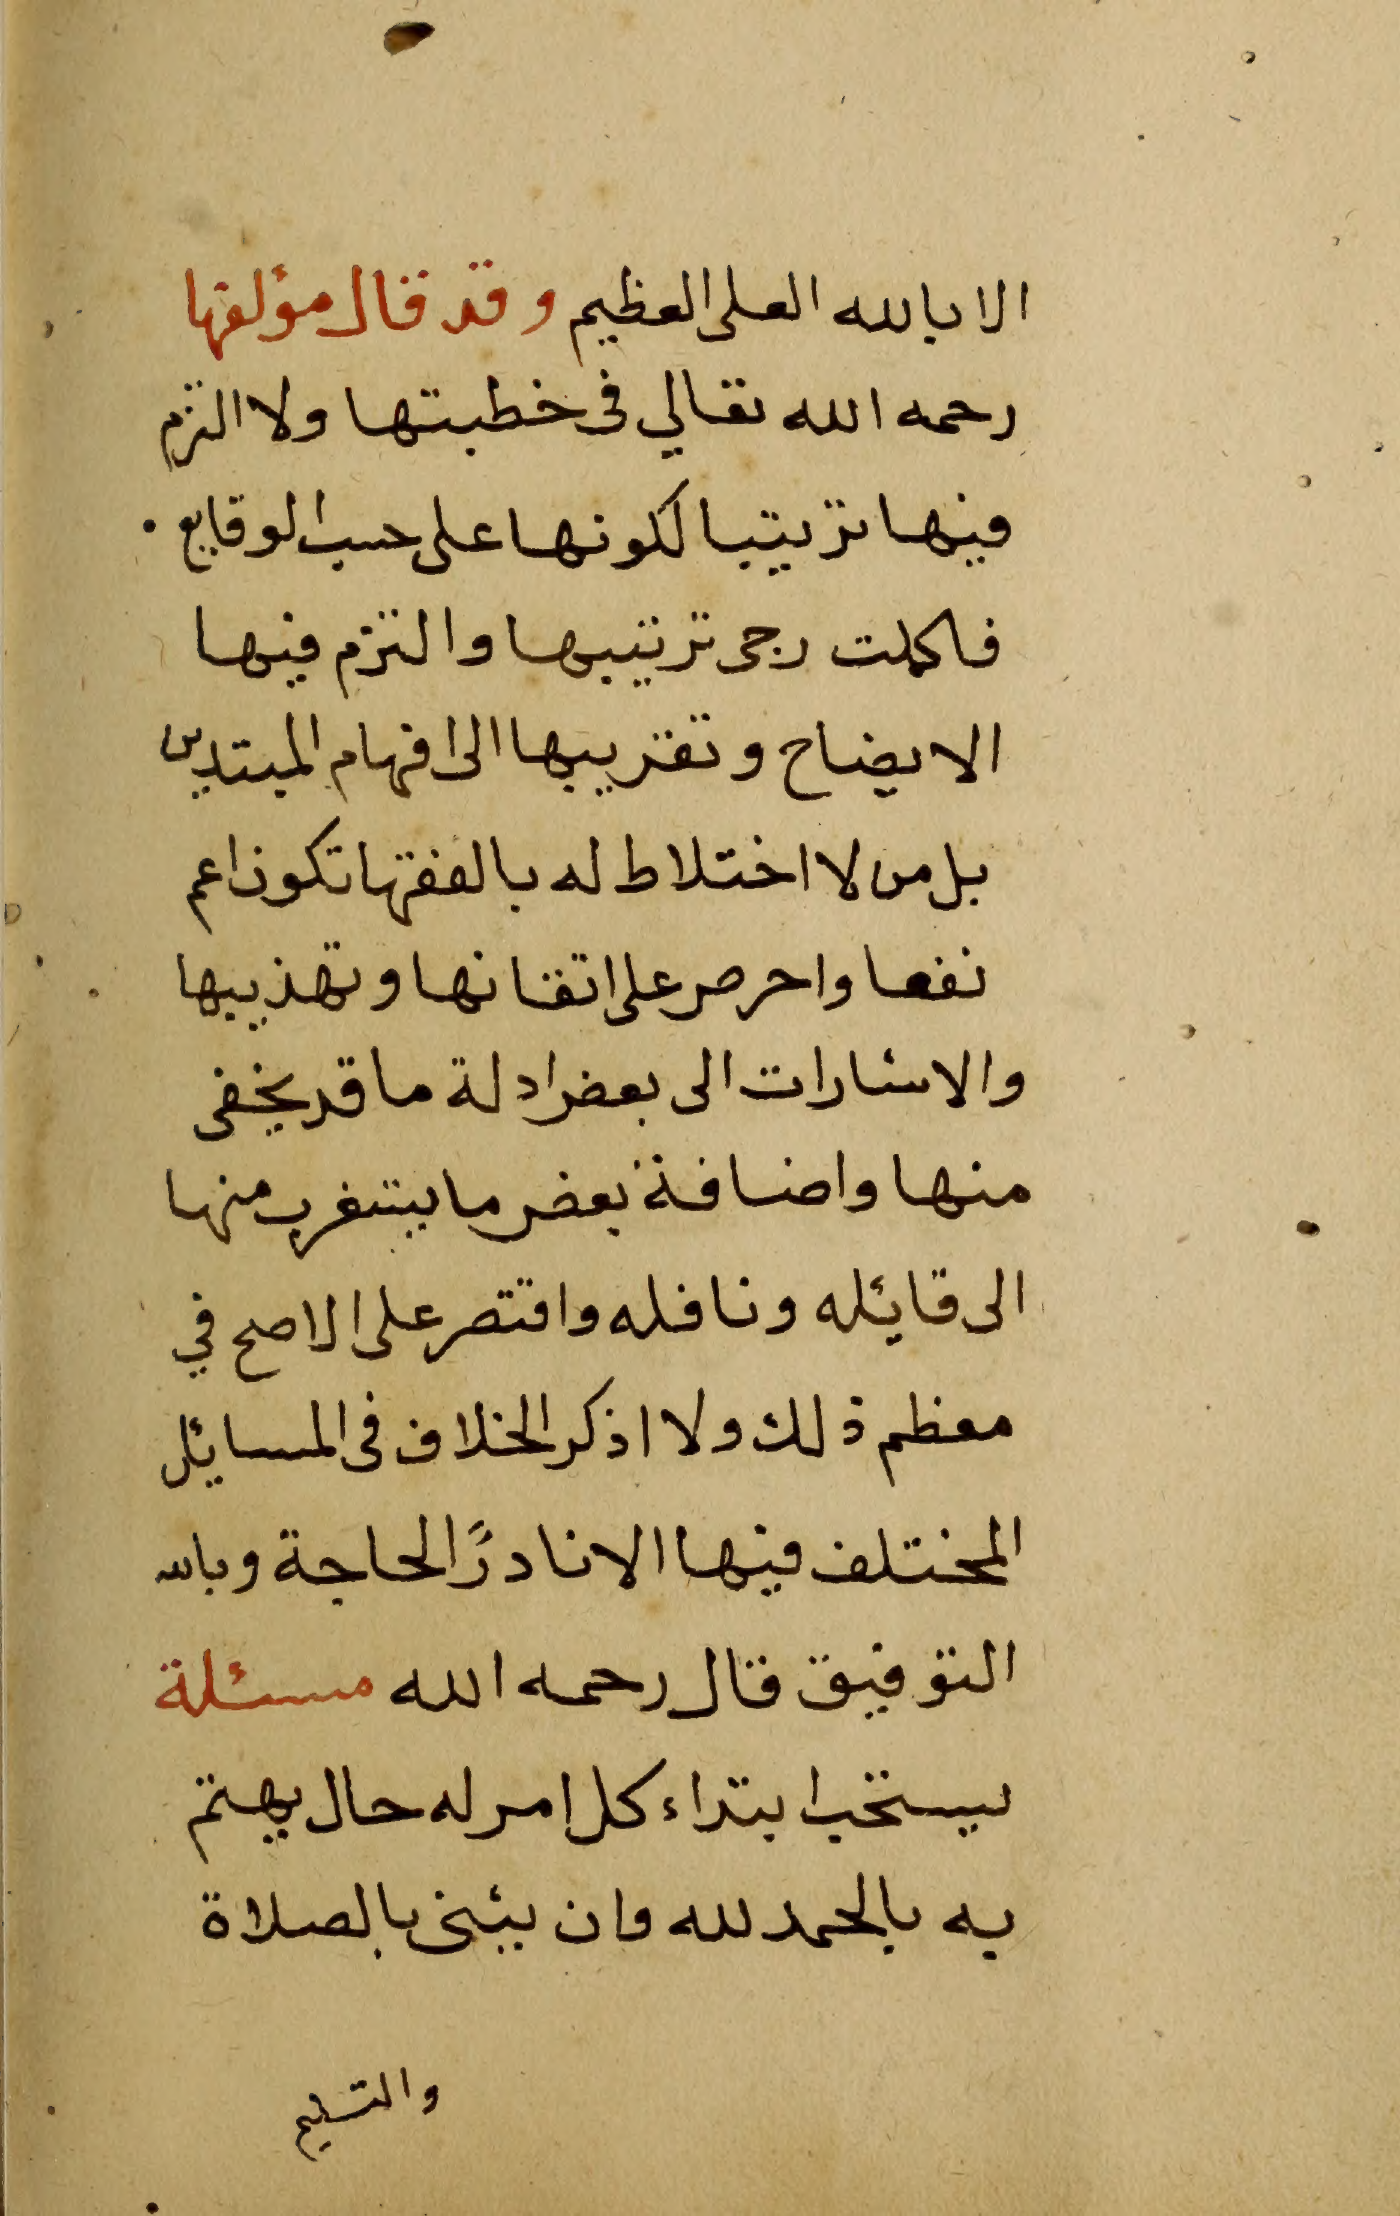 الا بالله العلى العظيم وقد قال مؤلفها
رحمه الله تعالي فى خطبتها ولا التزم
فيها ترتيبا لكونها على حسب الوقايع .
فاكملت رجى ترتيبها والتزم فيها
الايضاح وتقريبها الى افهام المبتدين
بل من لا اختلاط له بالفقها تكون اعم
نفعا واحرص على اتقانها وتهذيبها
والاشارات الى بعض ادلة ما قد يخفى
منها واضافة بعض ما يستغرب منها
الى قايئله وناقله واقتصر على الاصح في
معظم ذلك ولا اذكر الخلاف فى المسايئل
المختلف فيها الا نادرًا لحاجة وبالله
التوفيق قال رحمه الله مسئلة
يستحب ابتداء كل امر له حال يهتم
به بالحمد لله وان يثنى بالصلاة
والتسليم